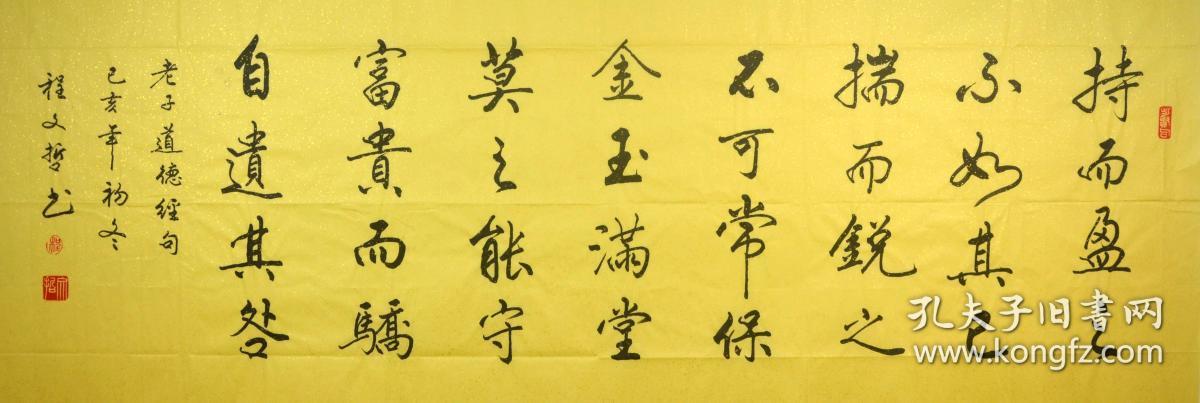 持而盈之
不如其已
揣而鋭之
不可常保
金玉滿堂
莫之能守
富貴而驕
自遺其咎
老子道德經句
己亥年初冬
程文哲书
孔夫子旧書网
www.kongfz.com